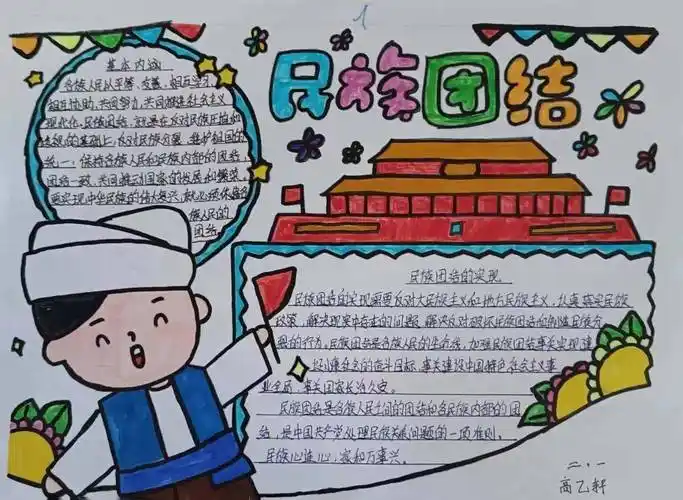 1
民族团结
基本内涵
各族人民以平等、友善、相互学习
相互协助、共同努力、共同
现代化。民族团结,就是在反对民族压迫和
基础上,反对民族分裂、维护祖国的
统一、保持各族人民和民族内部的团结,
团结一致、共同推动国家的发展和繁荣。
要实现中华民族的伟大复兴,就必须
族人民的
团结。
民族团结的实现
民族团结的实现需要反对大民族主义和地方民族主义,认真落实民族
政策,解决现实中存在的问题,解决反对破坏民族团结和制造民族分
裂的行为,民族团结是各族人民的生命线,加强民族团结事关实现
小康社会的奋斗目标,事关建设中国特色社会主义事
业全局,事关国家长治久安。
民族团结是各族人民之间的团结和各民族内部的团
结,是中国共产党处理民族关系问题的一项准则。
民族心连心,家和万事兴。
二.1
高乙轩